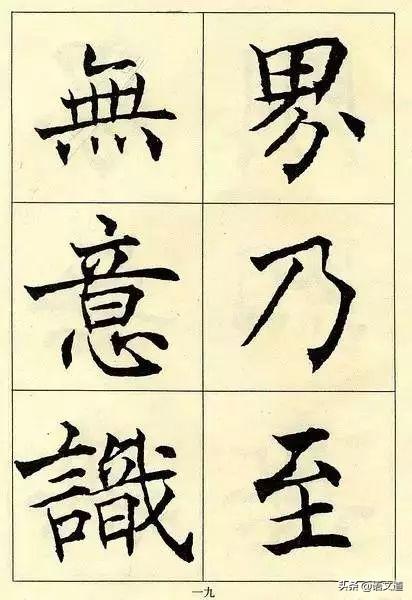 界乃至
無意識
一九
头条@语文道